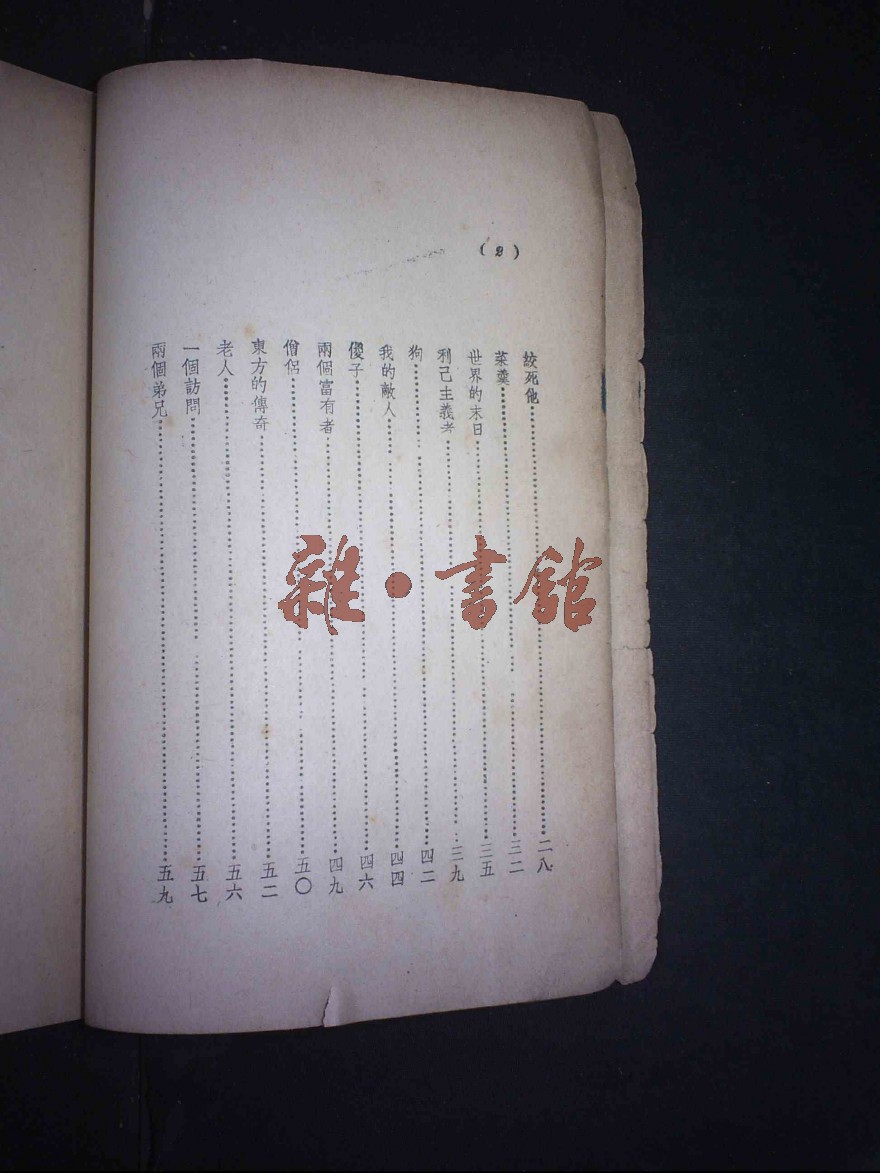 (2)
絞死他……二八
菜羹……三二
世界的末日……三五
利己主義者……三九
狗……四二
我的敵人……四四
傻子……四六
兩個富有者……四九
僧侶……五〇
東方的傳奇……五二
老人……五六
一個訪問……五七
兩個弟兄……五九
雜·書館